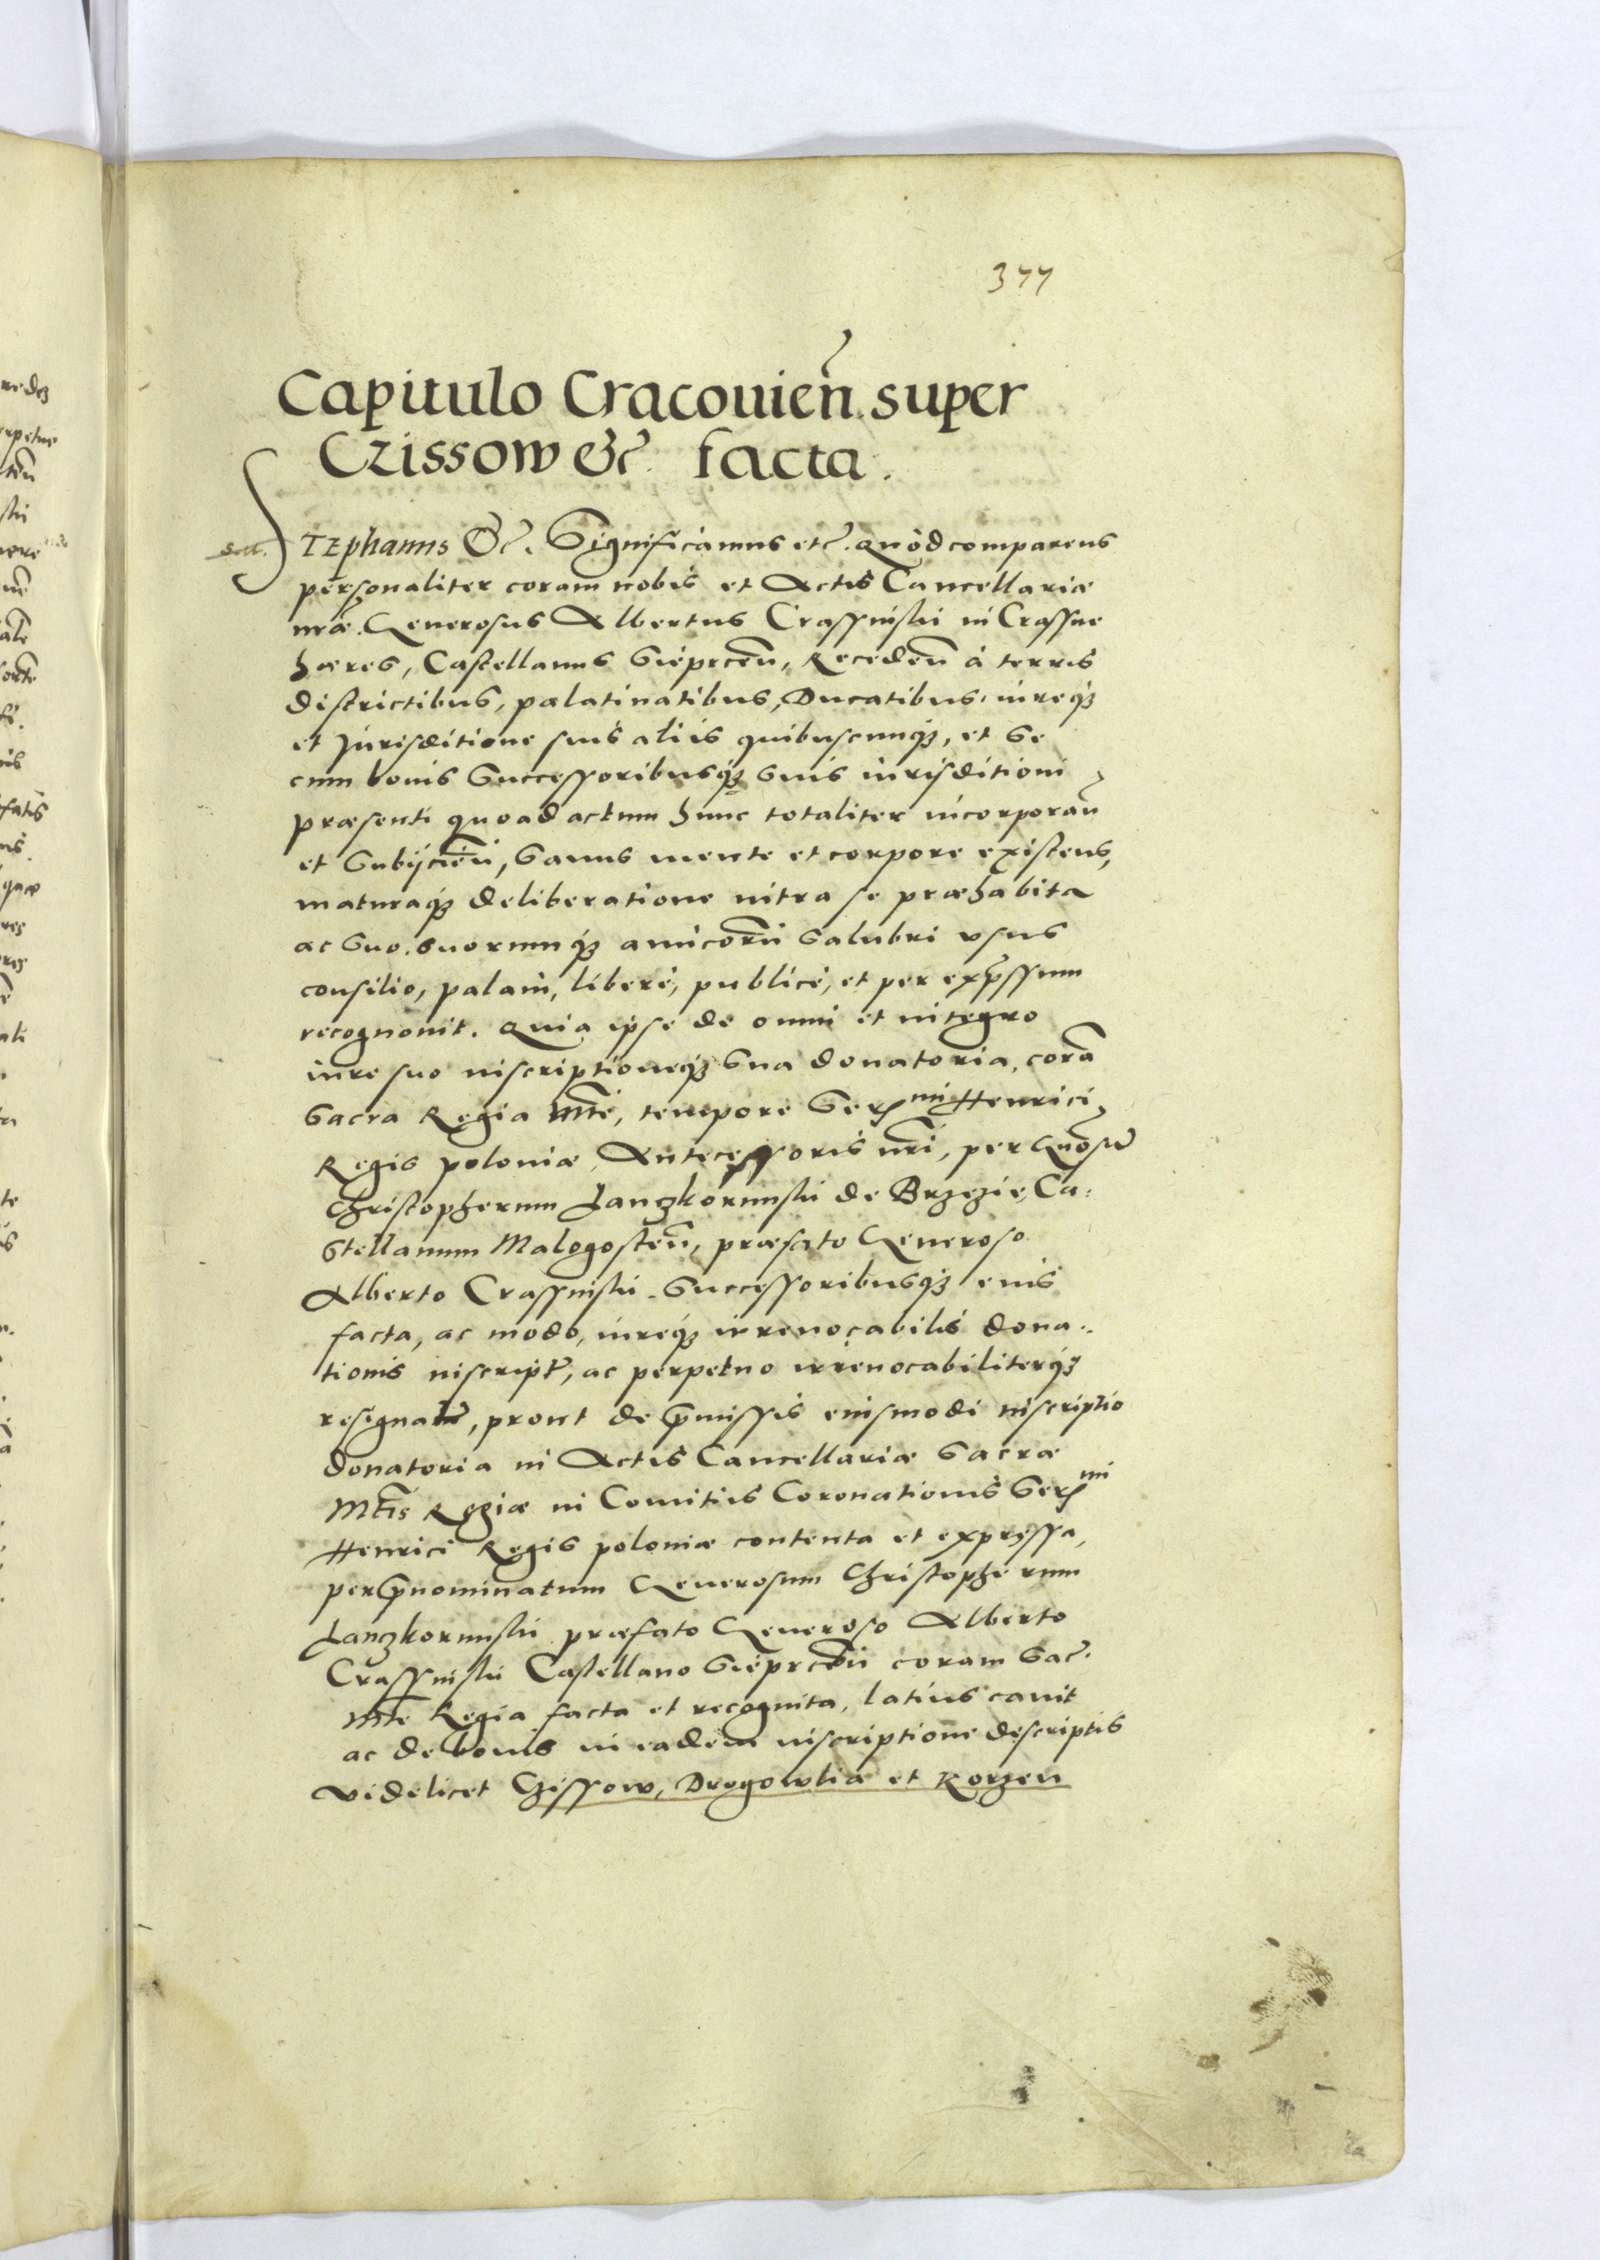 377
Capitulo Cracouien̄. super
Czissow &c. facta.
STEphanus &c. Significamus etc. Quòd comparens
personaliter coram nobis et Actis Cancellariæ
nr̄æ. Generosus Albertus Crassinski in Crassne
hæres, Castellanus Sieprceñ, Recedeñ à terris
districtibus, palatinatibus, Ducatibus, iureqȝ
et Jurisditione suis aliis quibuscunqȝ, et se
cum bonis Successoribusqȝ suis iurisditioni
præsenti quoad actum hunc totaliter incorporañ
et Subijcieñ, Sanus mente et corpore existens,
maturaqȝ deliberatione intra se præhabita
ac suo. suorumqȝ amicorũ salubri vsus
consilio, palam, liberè, publicè, et per exp̄ssum
recognouit. Quia ipse de omni et integro
iure suo inscriptioneqȝ sua donatoria, corã
Sacra Regia Mtẽ, tempore Serᵐⁱ Henrici
Regis poloniæ, Antecessoris nr̄i, per Gnõsũ
Christopherum Lanczkorunski de Brzezie, Ca-
stellanum Malogosteñ, præfato Generoso
Alberto Crassinski Successoribusqȝ eius
facta, ac modo, iureqȝ irreuocabilis dona-
tionis inscript̃, ac perpetuo irreuocabiliterqȝ
resignat̃, prout de p̄missis eiusmodi inscriptio
donatoria in Actis Cancellariæ Sacræ
Mt̃is Regiæ in Comitiis Coronationis Serᵐⁱ
Henrici Regis poloniæ contenta et expressa,
per p̄nominatum Generosum Christopherum
Lanczkorunski præfato Generoso Alberto
Crassinski Castellano Sieprceñ coram Sac̃.
Mt̃e Regia facta et recognita, latius cauit
ac de bonis in eadem inscriptione descriptis
videlicet Czissow, Drogowlia et Korzen